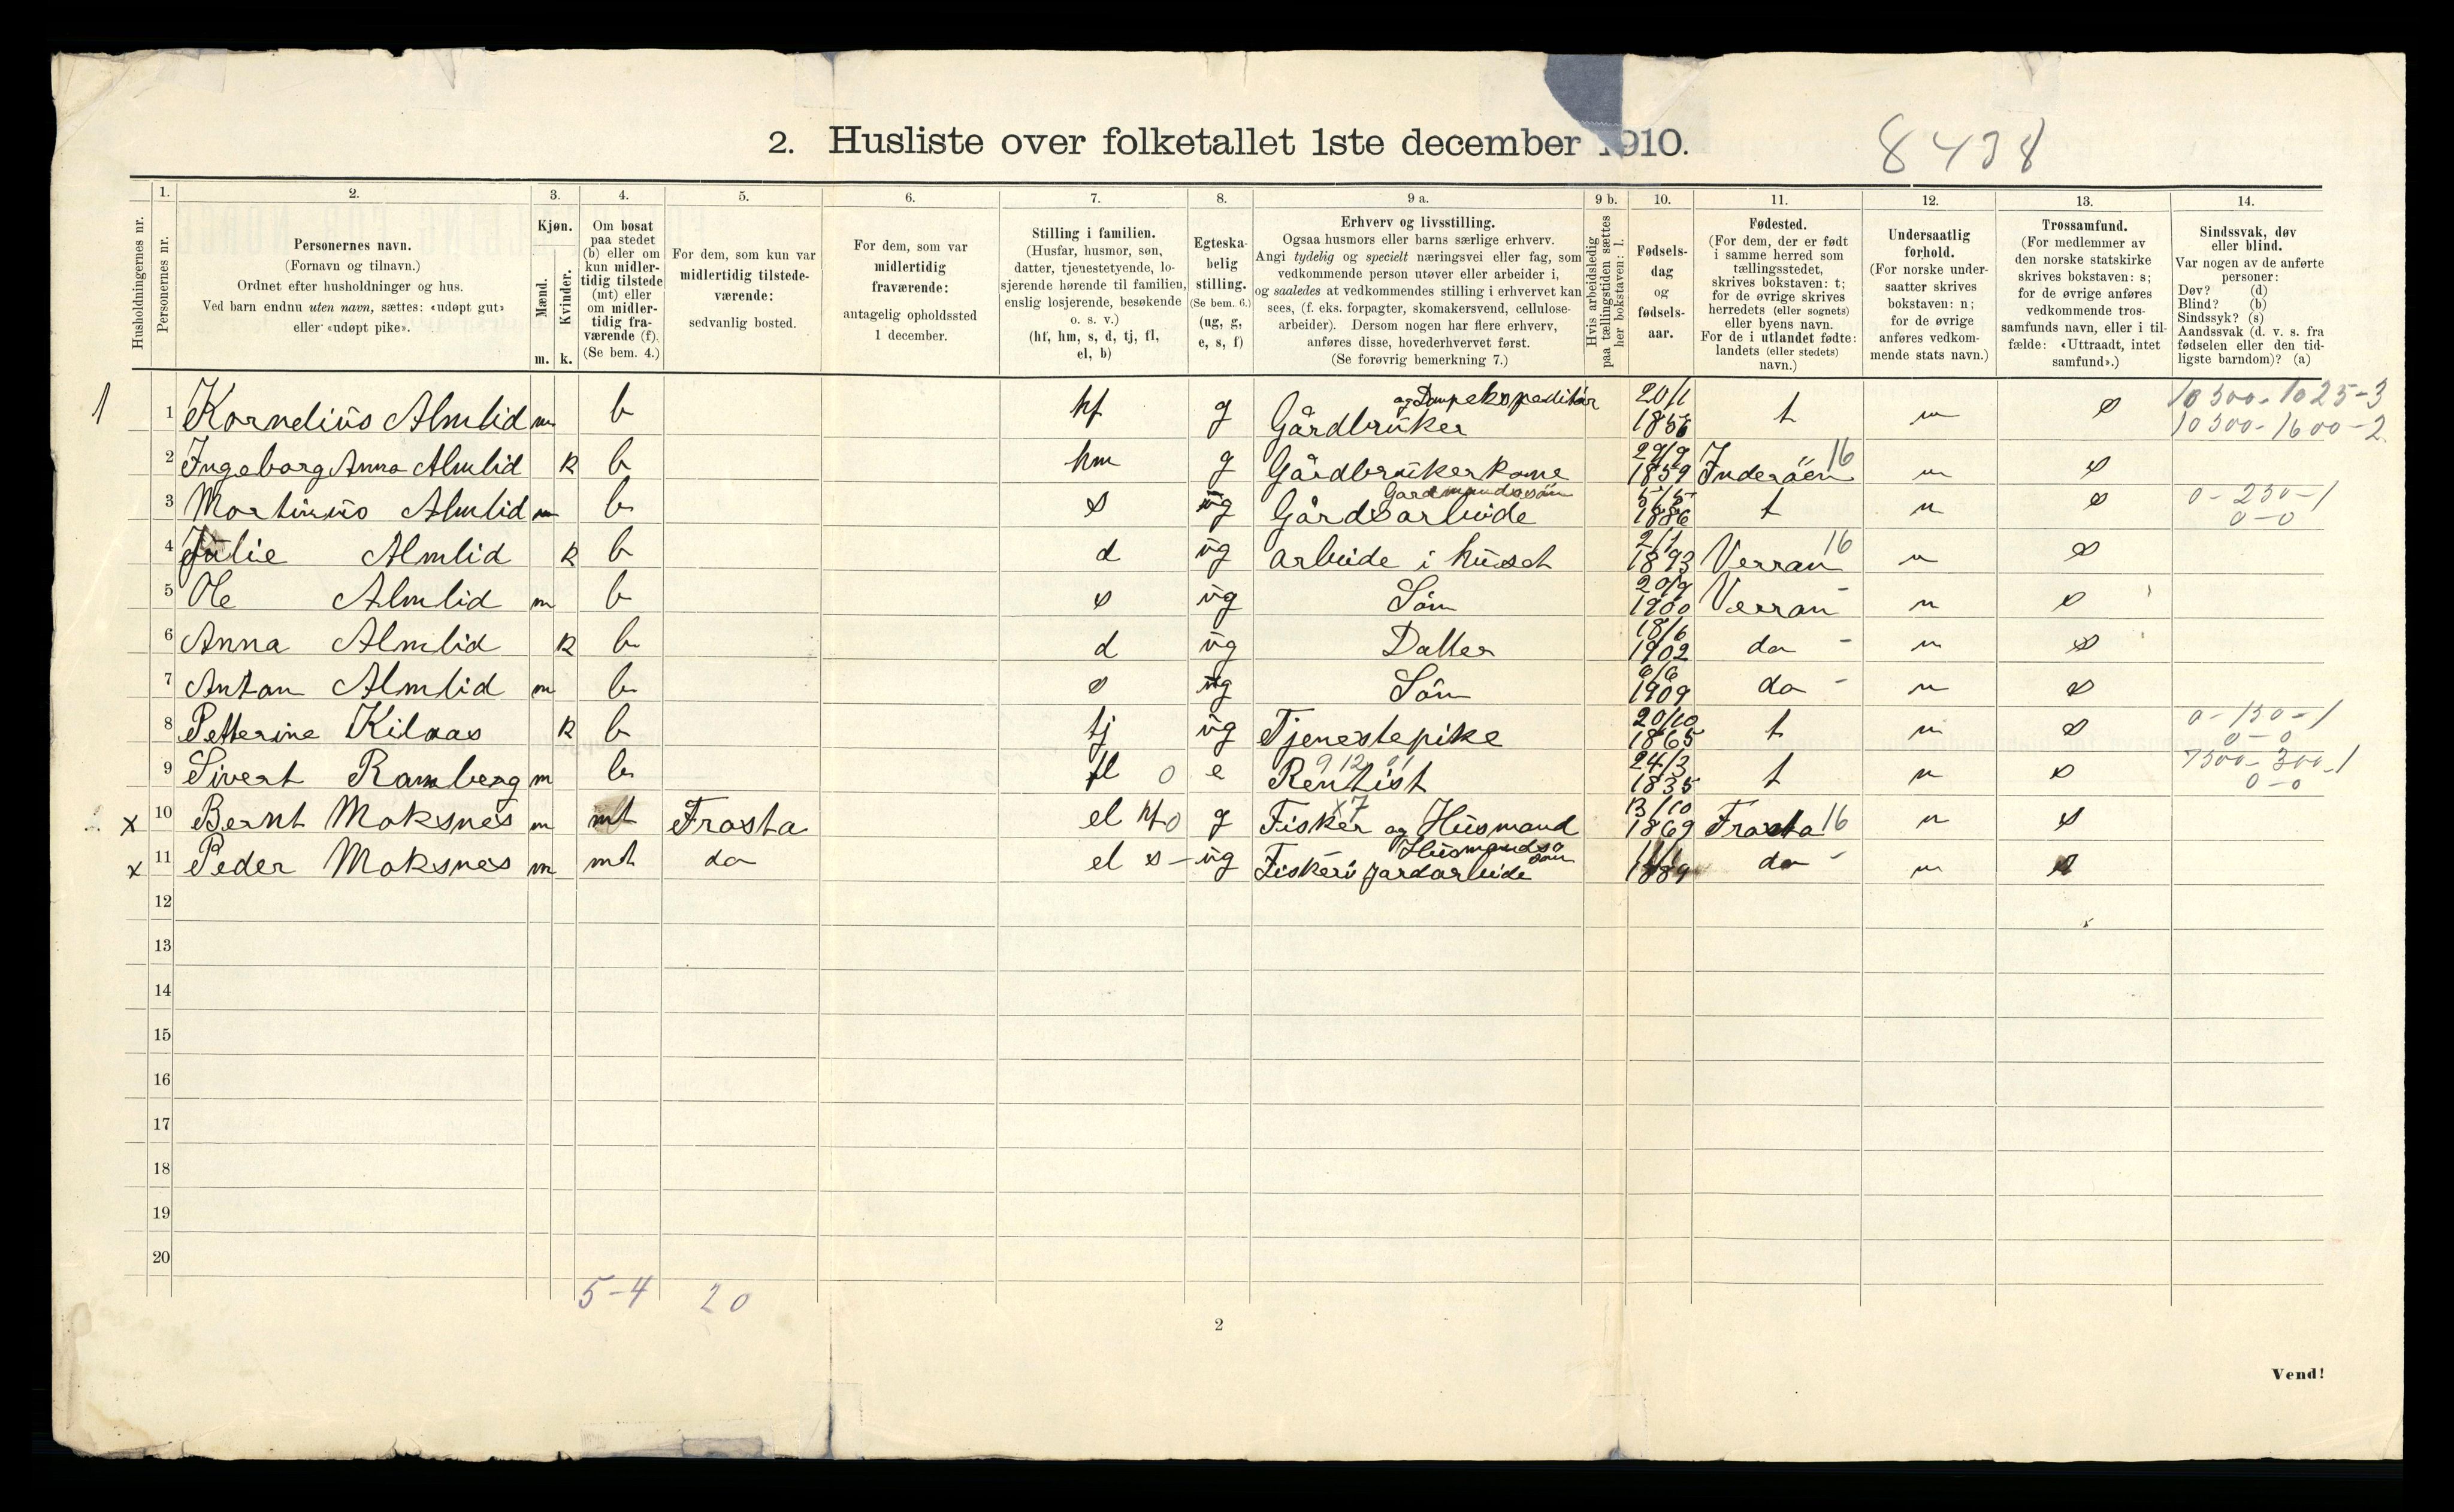 2. Husliste over folketallet 1ste december 1910.
8438
1. 2. 3. 4. 5. 6. 7. 8. 9 a. 9 b. 10. 11. 12. 13. 14.
Husholdningernes nr.
Personernes nr.
Personernes navn.
(Fornavn og tilnavn.)
Ordnet efter husholdninger og hus.
Ved barn endnu uten navn, sættes: «udøpt gut»
eller «udøpt pike».
Kjøn.
Mænd.
Kvinder.
m. k.
Om bosat
paa stedet
(b) eller om
kun midler-
tidig tilstede
(mt) eller
om midler-
tidig fra-
værende (f).
(Se bem. 4.)
For dem, som kun var
midlertidig tilstede-
værende:
sedvanlig bosted.
For dem, som var
midlertidig
fraværende:
antagelig opholdssted
1 december.
Stilling i familien.
(Husfar, husmor, søn,
datter, tjenestetyende, lo-
sjerende hørende til familien,
enslig losjerende, besøkende
o. s. v.)
(hf, hm, s, d, tj, fl,
el, b)
Egteska-
belig
stilling.
(Se bem. 6.)
(ug, g,
e, s, f)
Erhverv og livsstilling.
Ogsaa husmors eller barns særlige erhverv.
Angi tydelig og specielt næringsvei eller fag, som
vedkommende person utøver eller arbeider i,
og saaledes at vedkommendes stilling i erhvervet kan
sees, (f. eks. forpagter, skomakersvend, cellulose-
arbeider). Dersom nogen har flere erhverv,
anføres disse, hovederhvervet først.
(Se forøvrig bemerkning 7.)
Hvis arbeidsledig
paa tællingstiden sættes
her bokstaven: l.
Fødsels-
dag
og
fødsels-
aar.
Fødested.
(For dem, der er født
i samme herred som
tællingsstedet,
skrives bokstaven: t;
for de øvrige skrives
herredets (eller sognets)
eller byens navn.
For de i utlandet fødte:
landets (eller stedets)
navn.)
Undersaatlig
forhold.
(For norske under-
saatter skrives
bokstaven: n;
for de øvrige
anføres vedkom-
mende stats navn.)
Trossamfund.
(For medlemmer av
den norske statskirke
skrives bokstaven: s;
for de øvrige anføres
vedkommende tros-
samfunds navn, eller i til-
fælde: «Uttraadt, intet
samfund».)
Sindssvak, døv
eller blind.
Var nogen av de anførte
personer:
Døv? (d)
Blind? (b)
Sindssyk? (s)
Aandssvak (d. v. s. fra
fødselen eller den tid-
ligste barndom)? (a)
1 1 Kornelius Almlid m b hf g Gårdbruker og Dampekspeditör 20/1 1856 t n s 10300-1025-3
10300-1600-2
2 Ingeborg Anna Almlid k b hm g Gårdbrukerkone 29/9 1859 Inderöen 16 n s
3 Martinus Almlid m b s ug Gårdsarbeide Gardmandssön 5/5 1886 t n s 0-230-1
0-0
4 Julie Almlid k b d ug arbeide i huset 2/1 1893 Verran 16 n s
5 Ole Almlid m b s ug Sön 20/9 1900 Verran - n s
6 Anna Almlid k b d ug Datter 18/6 1902 do - n s
7 Anton Almlid m b s ug Sön 6/6 1909 do - n s
8 Petterine Kilaas k b tj ug Tjenestepike 20/10 1865 t n s 0-130-1
0-0
9 Sivert Ramberg m b fl 0 e Rentist 24/3 1835 t n s 7500-300-1
0-0
x 10 Bernt Moksnes m mt Frosta el hf 0 g Fisker og Husmand x7 13/10 1869 Frosta 16 n s
x 11 Peder Moksnes m mt do el s - ug Fiskeri jordarbeide Husmandssön 1889 do - n s
12
13
14
15
16
17
18
19
20
5-4 20
2
Vend!